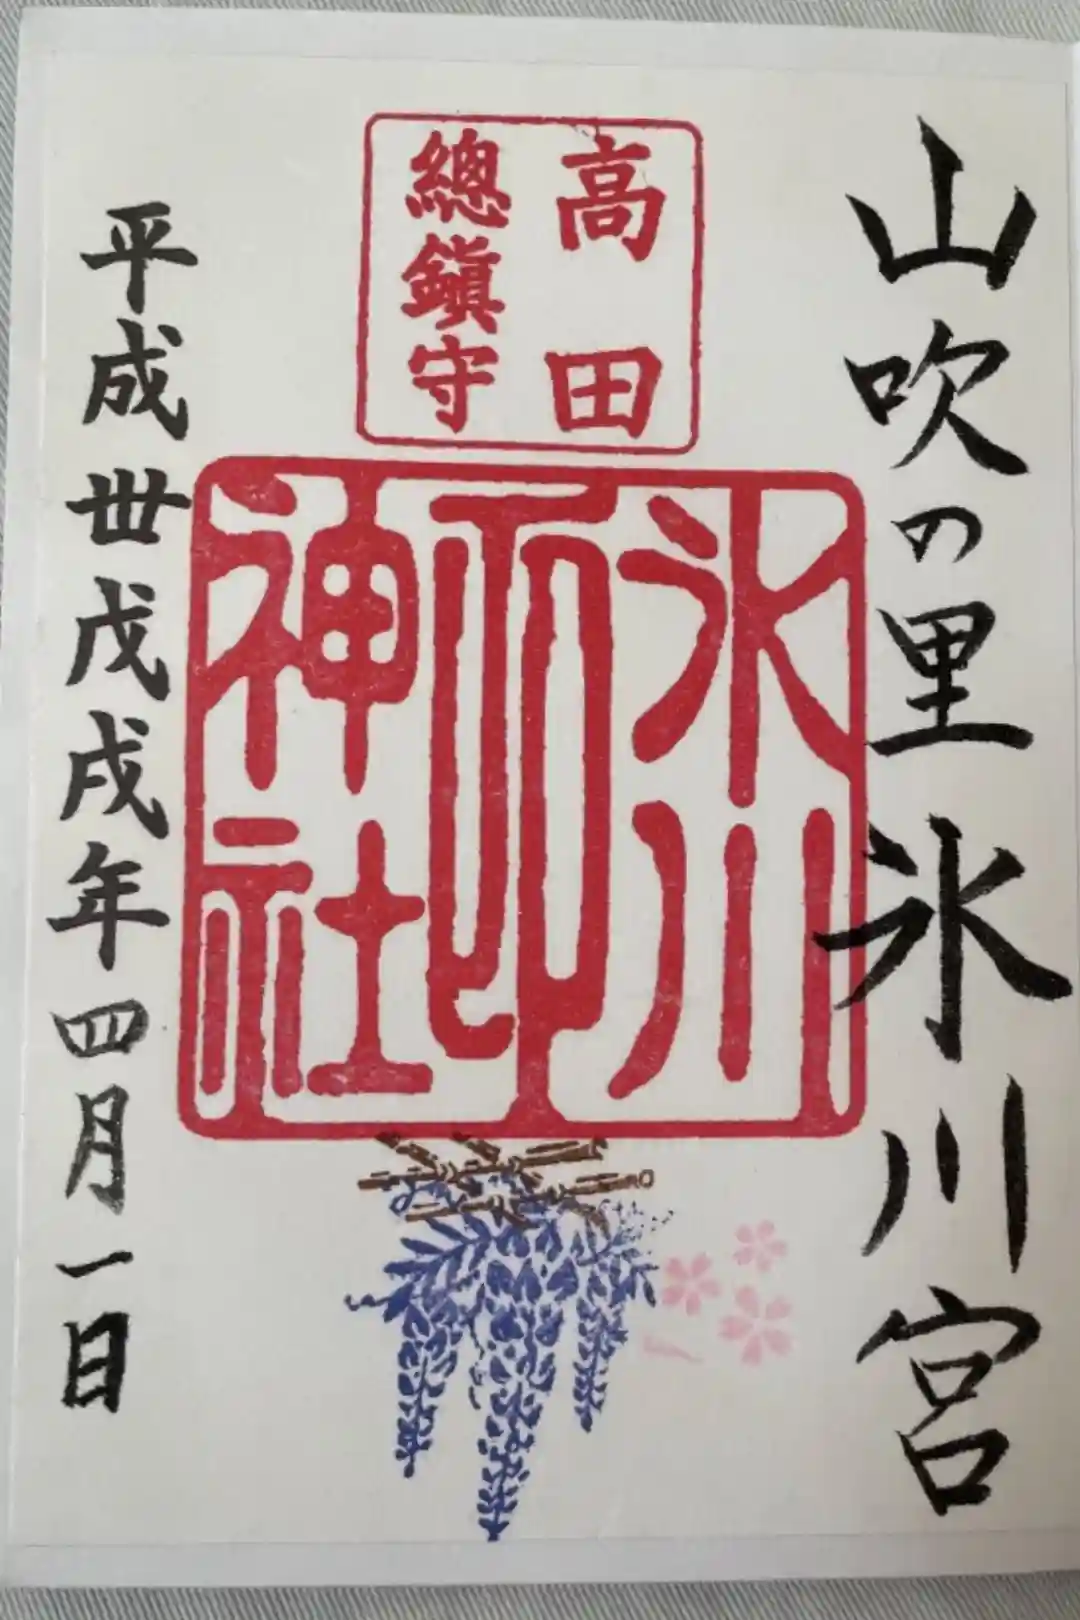 山吹の里氷川宮
高田
總鎮守
氷川
神社
平成丗戊戌年四月一日